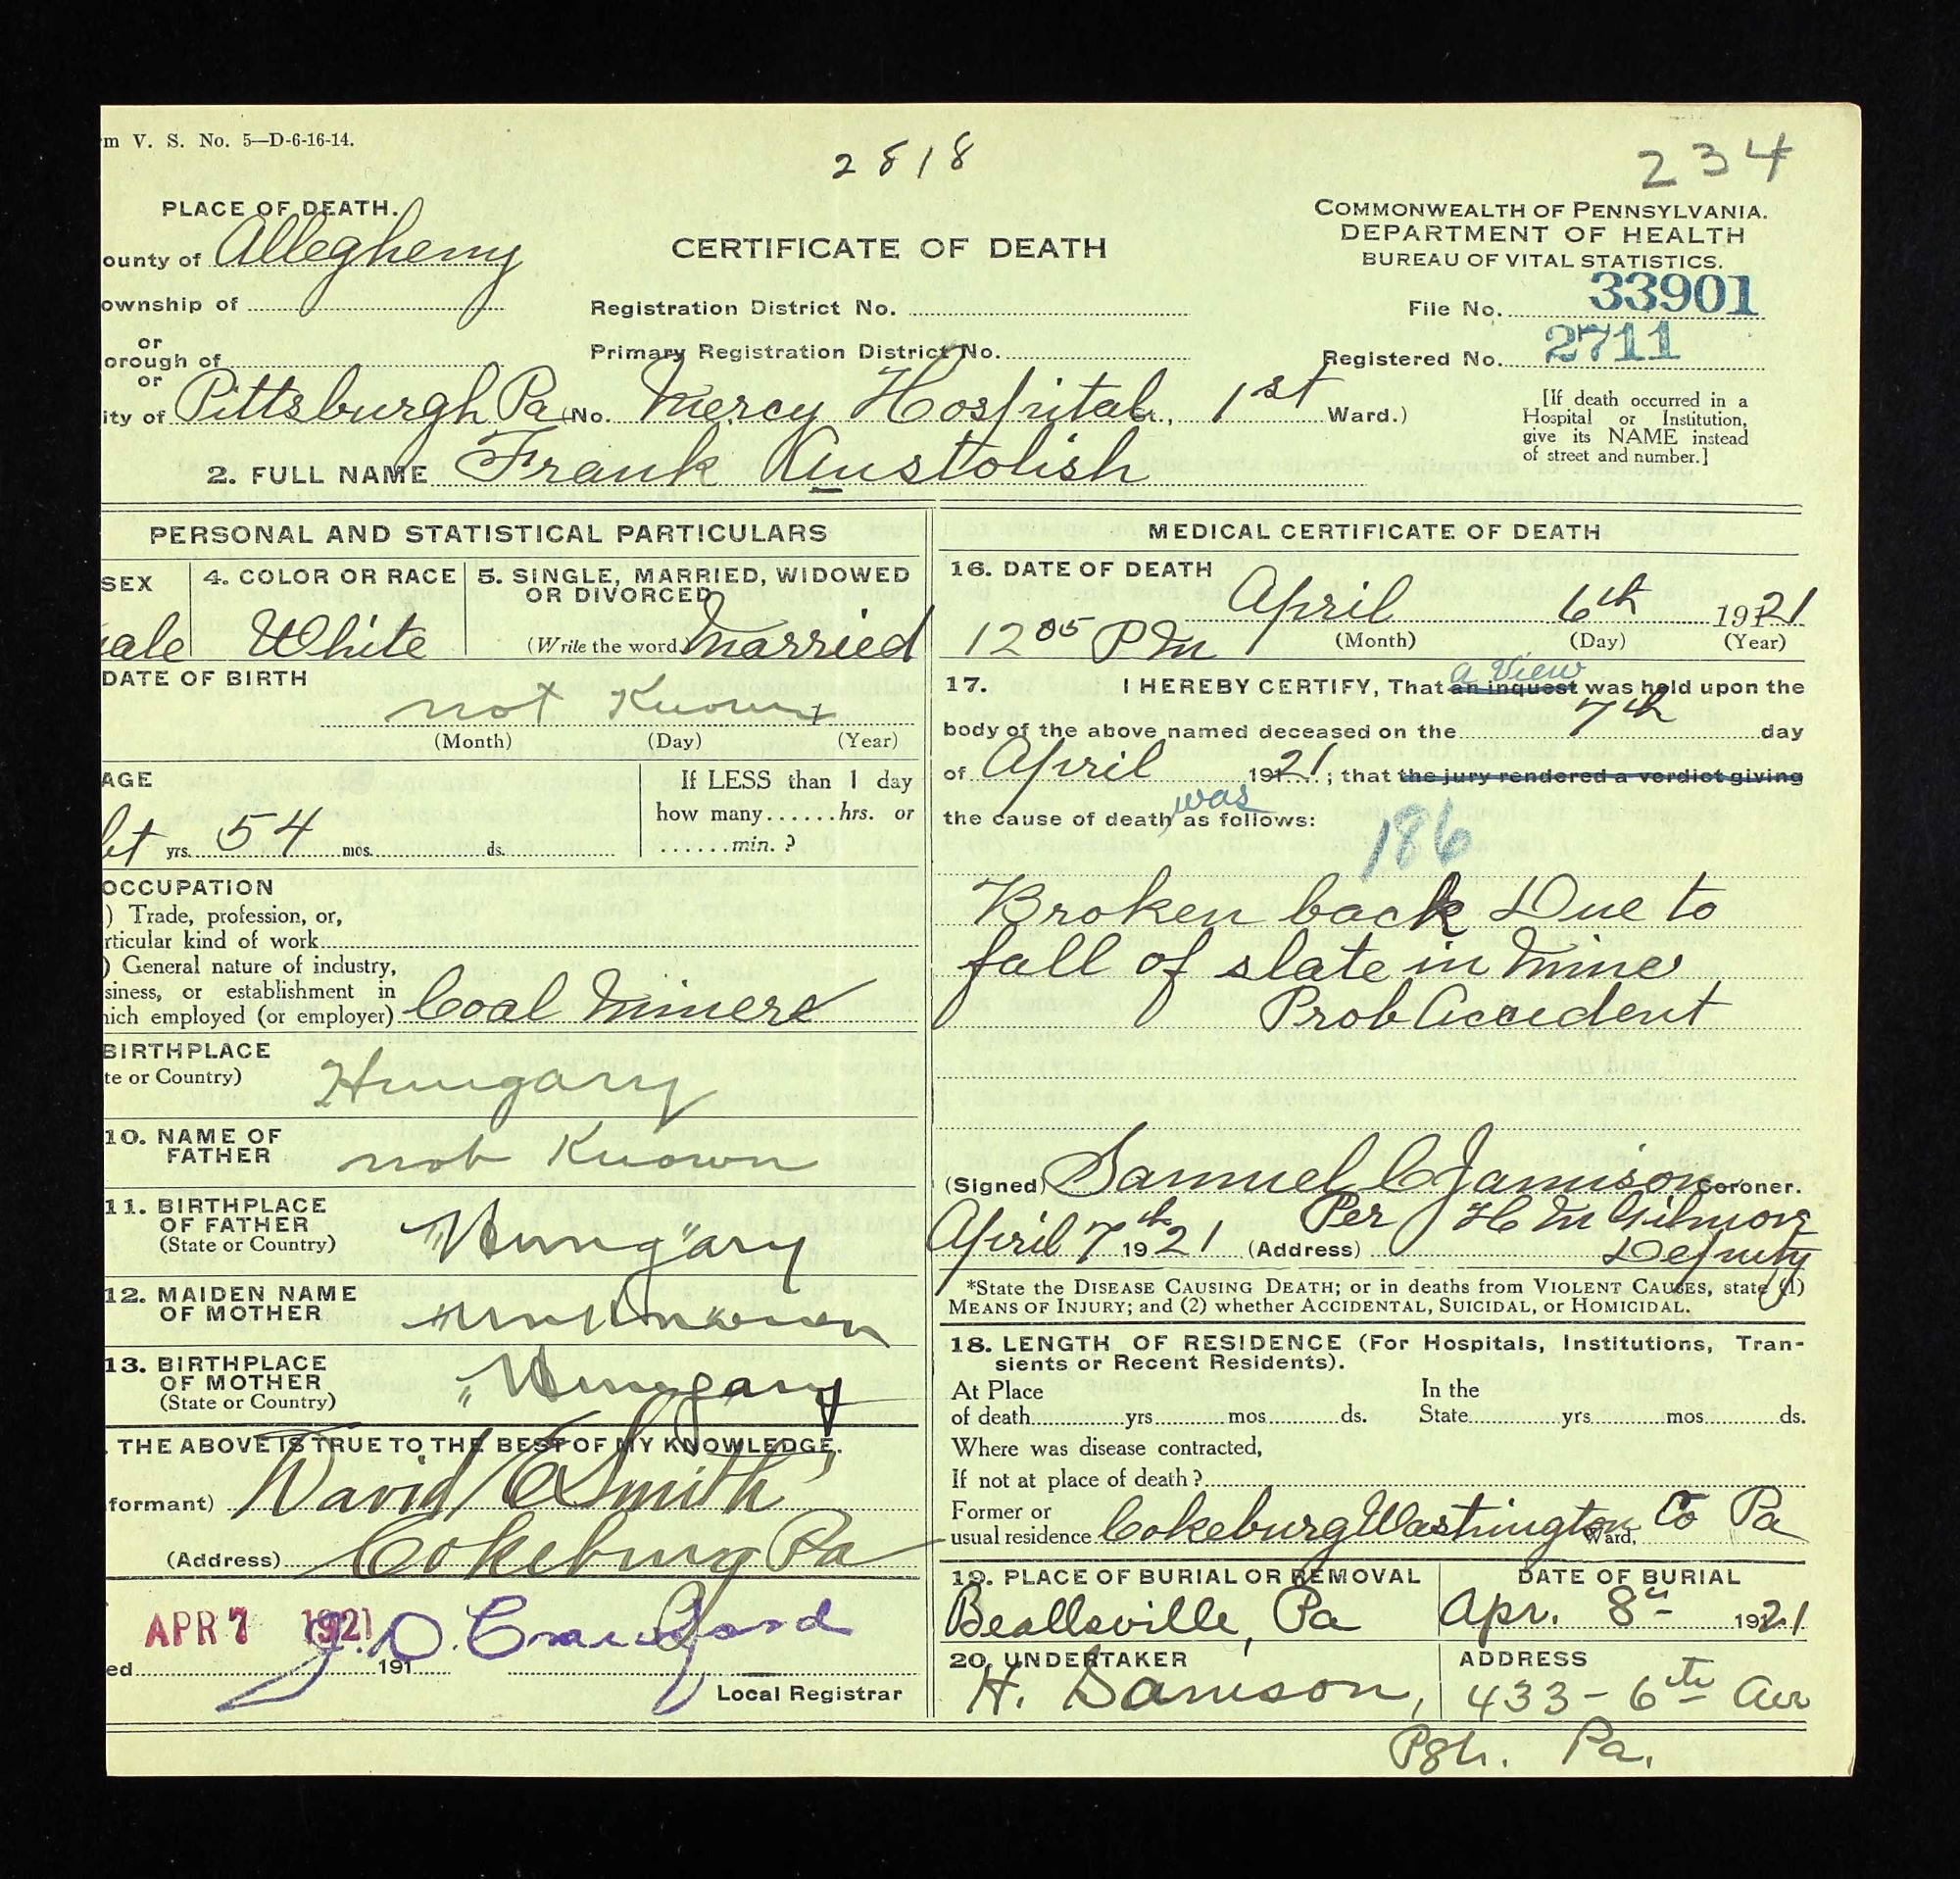 m V. S. No. 5—D-6-16-14.
2818
234
PLACE OF DEATH.
ounty of Allegheny
ownship of
or
orough of
or
ity of Pittsburgh Pa (No. Mercy Hospital St., 1st Ward.)
CERTIFICATE OF DEATH
Registration District No.
Primary Registration District No.
COMMONWEALTH OF PENNSYLVANIA.
DEPARTMENT OF HEALTH
BUREAU OF VITAL STATISTICS.
File No. 33901
Registered No. 2711
[If death occurred in a
Hospital or Institution,
give its NAME instead
of street and number.]
2. FULL NAME Frank Austolish
PERSONAL AND STATISTICAL PARTICULARS
SEX
ale
4. COLOR OR RACE
White
5. SINGLE, MARRIED, WIDOWED
OR DIVORCED
(Write the word) Married
DATE OF BIRTH
not Known
(Month) (Day) (Year)
AGE
bt yrs. 54 mos. ds.
If LESS than 1 day
how many......hrs. or
......min. ?
OCCUPATION
) Trade, profession, or,
rticular kind of work
) General nature of industry,
siness, or establishment in
hich employed (or employer) Coal Miner
BIRTHPLACE
te or Country)
Hungary
10. NAME OF
FATHER
not Known
11. BIRTHPLACE
OF FATHER
(State or Country)
"Hungary"
12. MAIDEN NAME
OF MOTHER
"Unknown
13. BIRTHPLACE
OF MOTHER
(State or Country)
"Hungary
. THE ABOVE IS TRUE TO THE BEST OF MY KNOWLEDGE.
formant) David E Smith
(Address) Cokeburg Pa
APR 7 1921
ed 191
J. D. Crawford
Local Registrar
MEDICAL CERTIFICATE OF DEATH
16. DATE OF DEATH
April 6th 1921
12 05 PM
(Month) (Day) (Year)
17. I HEREBY CERTIFY, That an inquest a View was held upon the
body of the above named deceased on the 7th day
of April 1921; that the jury rendered a verdict giving
the cause of death, was as follows:
186
Broken back Due to
fall of slate in Mine
Prob Accident
(Signed) Samuel C Jamison Coroner.
Per H M Gilmore
April 7th 1921 (Address)
Deputy
*State the DISEASE CAUSING DEATH; or in deaths from VIOLENT CAUSES, state (1)
MEANS OF INJURY; and (2) whether ACCIDENTAL, SUICIDAL, or HOMICIDAL.
18. LENGTH OF RESIDENCE (For Hospitals, Institutions, Tran-
sients or Recent Residents).
At Place In the
of death yrs. mos. ds. State yrs. mos. ds.
Where was disease contracted,
If not at place of death?
Former or
usual residence Cokeburg Washington Ward, Co Pa
19. PLACE OF BURIAL OR REMOVAL
Beallsville, Pa
DATE OF BURIAL
Apr. 8th 1921
20. UNDERTAKER
H. Samson,
ADDRESS
433 - 6th Ave
Pgh. Pa.